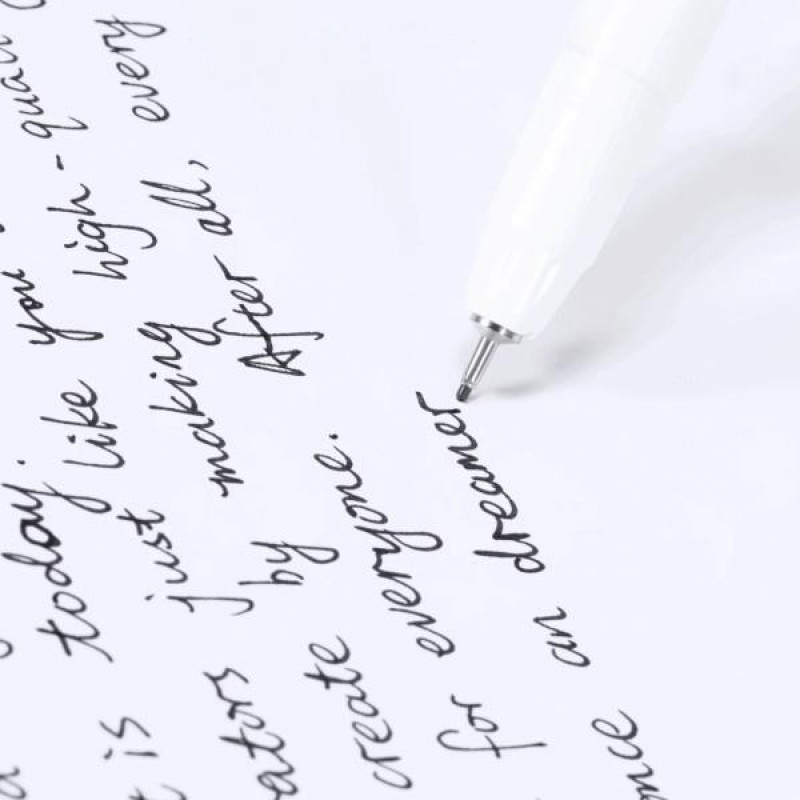 is today
ators just like you
create by making high-quali
for everyone. After all, every
nce an dreamer